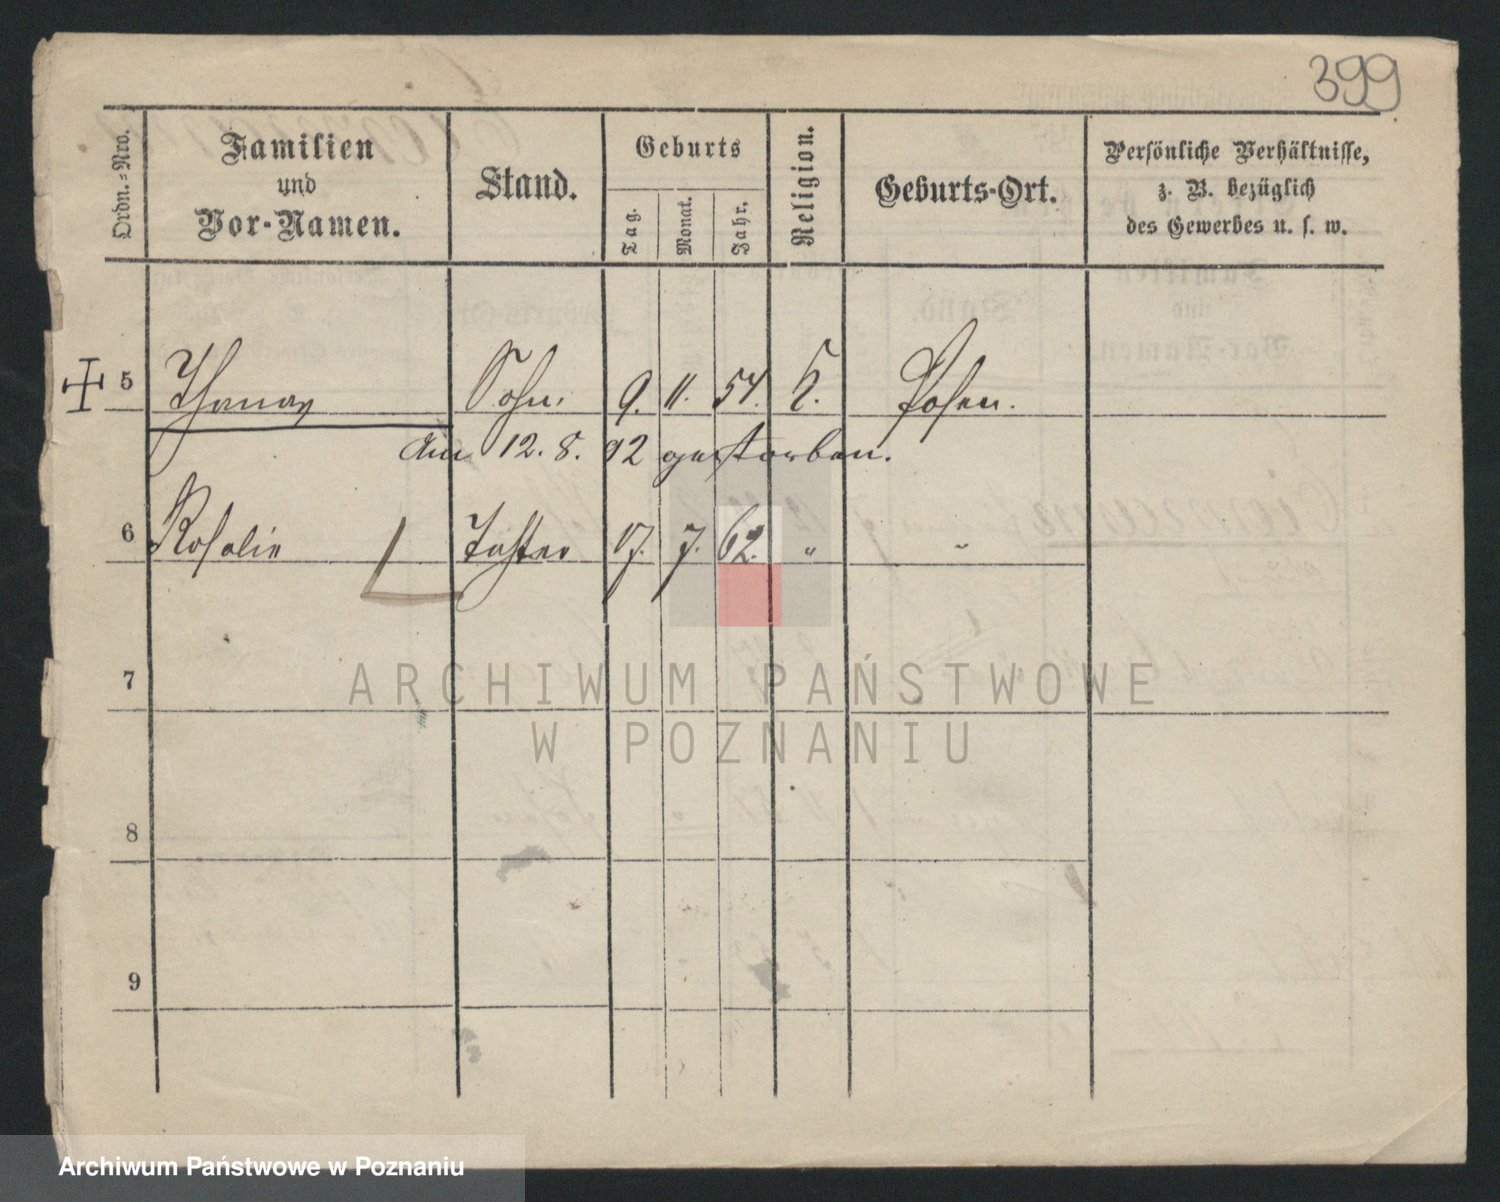 399
Ordn.-Nro.
Familien
und
Vor-Namen.
Stand.
Geburts
Tag.
Monat.
Jahr.
Religion.
Geburts-Ort.
Persönliche Verhältnisse,
z. B. bezüglich
des Gewerbes u. s. w.
5 Sohn. 9. 11. 54. K. Posen.
am 12. 8. 92 gestorben.
6 Rosalie Tochter 17. 7. 62. " "
7
8
9
ARCHIWUM PAŃSTWOWE
W POZNANIU
Archiwum Państwowe w Poznaniu